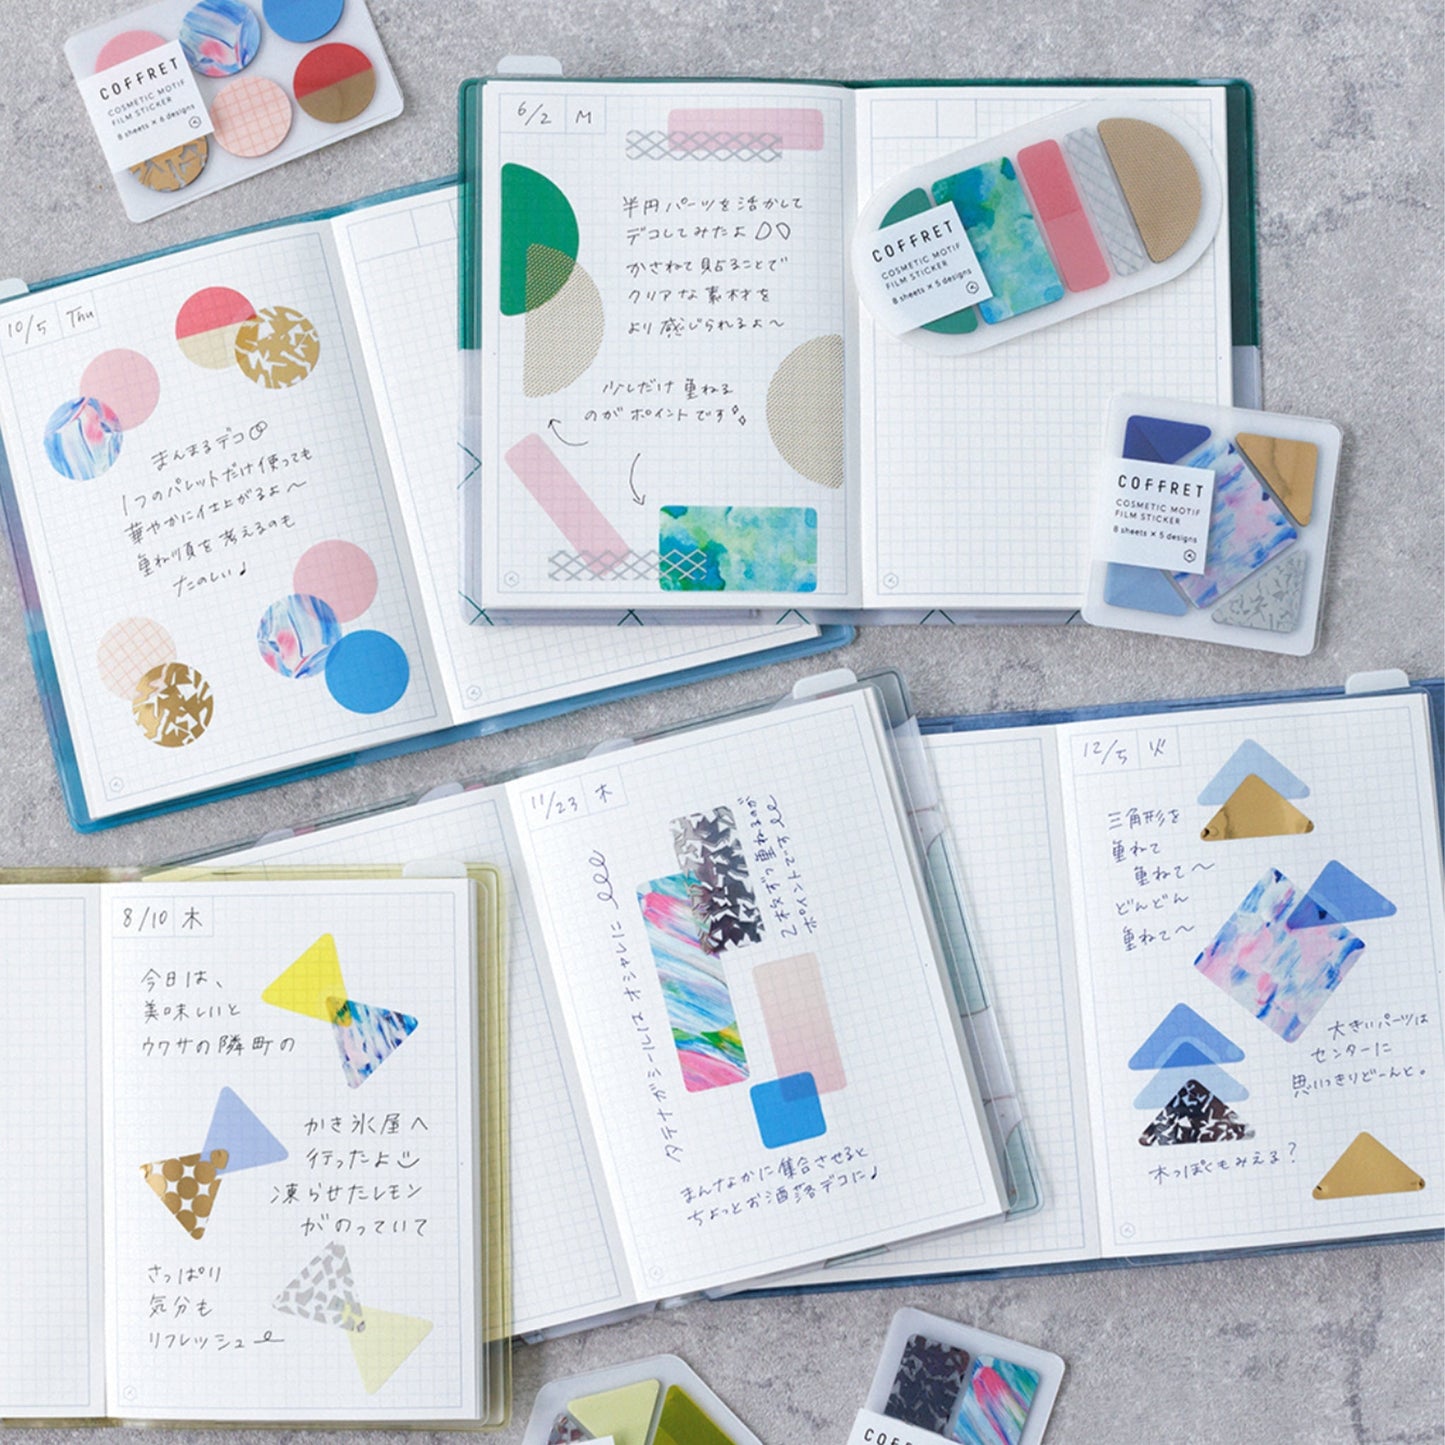 COFFRET
COSMETIC MOTIF
FILM STICKER
8 sheets × 6 designs
10/5 Thu
まんまるデコ
1つのパレットだけ使っても
華やかに仕上がるよ〜
重ね順を考えるのも
たのしい♪
6/2 M
半円パーツを活かして
デコしてみたよ
かさねて貼ることで
クリアな素材を
より感じられるよ〜
少しだけ重ねる
のがポイントです
COFFRET
COSMETIC MOTIF
FILM STICKER
8 sheets × 5 designs
COFFRET
COSMETIC MOTIF
FILM STICKER
8 sheets × 5 designs
8/10 木
今日は、
美味しいと
ウワサの隣町の
かき氷屋へ
行ったよ
凍らせたレモン
がのっていて
さっぱり
気分も
リフレッシュ
11/23 木
タテナガシールはオシャレに
2本ずつ重ねるのが
ポイントです
まんなかに集合させると
ちょっとお洒落デコに♪
12/5 火
三角形を
重ねて
重ねて〜
どんどん
重ねて〜
大きいパーツは
センターに
思いっきりどーんと。
木っぽくもみえる?
COFFRET